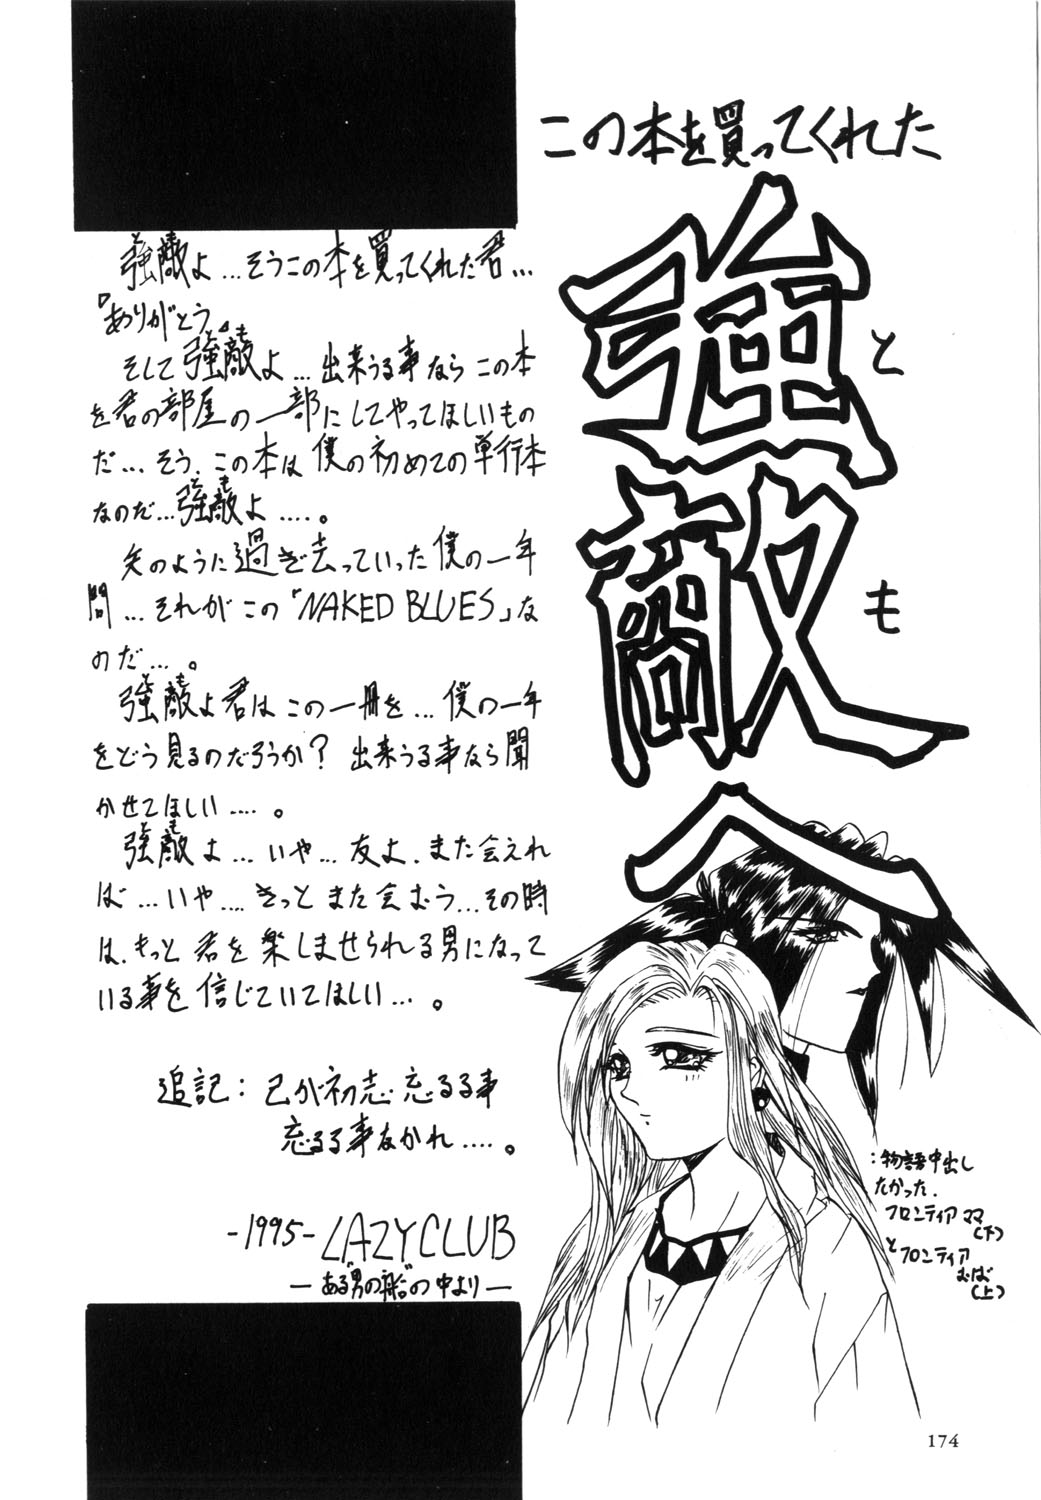 この本を買ってくれた
強敵へ
とも
強敵よ…そうこの本を買ってくれた君…
とも
『ありがとう』
そして強敵よ…出来うる事ならこの本
とも
を君の部屋の一部にしてやってほしいもの
だ…そう、この本は僕の初めての単行本
なのだ…強敵よ….。
とも
矢のように過ぎ去っていった僕の一年
間…それがこの「NAKED BLUES」な
のだ…。
強敵よ君はこの一冊を…僕の一年
とも
をどう見るのだろうか？出来うる事なら聞
かせてほしい….。
強敵よ…いや…友よ、また会えれ
とも
ば…いや….きっとまた会おう…その時
は、もっと君を楽しませられる男になって
いる事を信じていてほしい…。
追記：己が初志忘るる事
忘るる事なかれ….。
-1995- LAZYCLUB
―ある"男の船"の中より―
：物語中出し
たかった、
フロンティアママ
(下)
とフロンティア
むば
(上)
174